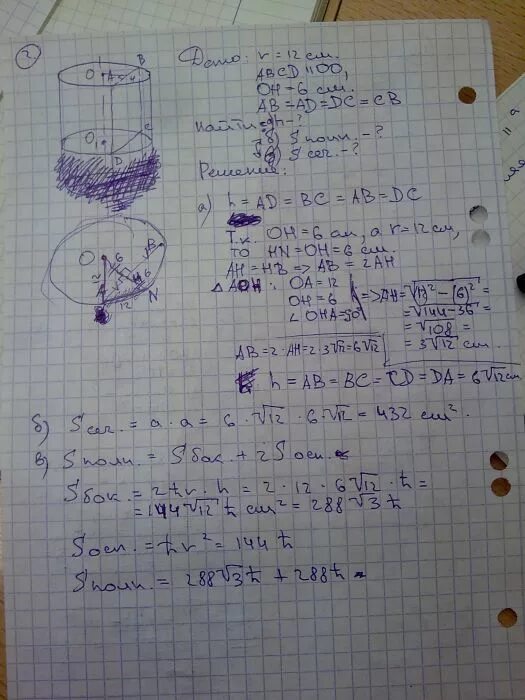 2
Дано: r = 12 см.
ABCD || OO₁
OH = 6 см.
AB = AD = DC = CB
Найти: а) h - ?
б) S полн. - ?
в) S сеч. - ?
Решение:
а) h = AD = BC = AB = DC
Т.к. OH = 6 см, а r = 12 см,
то HN = OH = 6 см.
AH = HB => AB = 2AH
△ AOH: OA = 12
OH = 6
∠OHA = 90°
=> AH = √(12)² - (6)² =
= √144 - 36 =
= √108 =
= 3√12 см.
AB = 2 · AH = 2 · 3√12 = 6√12
h = AB = BC = CD = DA = 6√12 см
б) S сеч. = a · a = 6 · √12 · 6 · √12 = 432 см².
в) S полн. = S бок. + 2 S осн.
S бок. = 2πr · h = 2 · 12 · 6√12 · π =
= 144√12 π см² = 288√3 π
S осн. = πr² = 144 π
S полн. = 288√3 π + 288π
O A B
O₁ D C
O 6 H 6 B
A 12 N